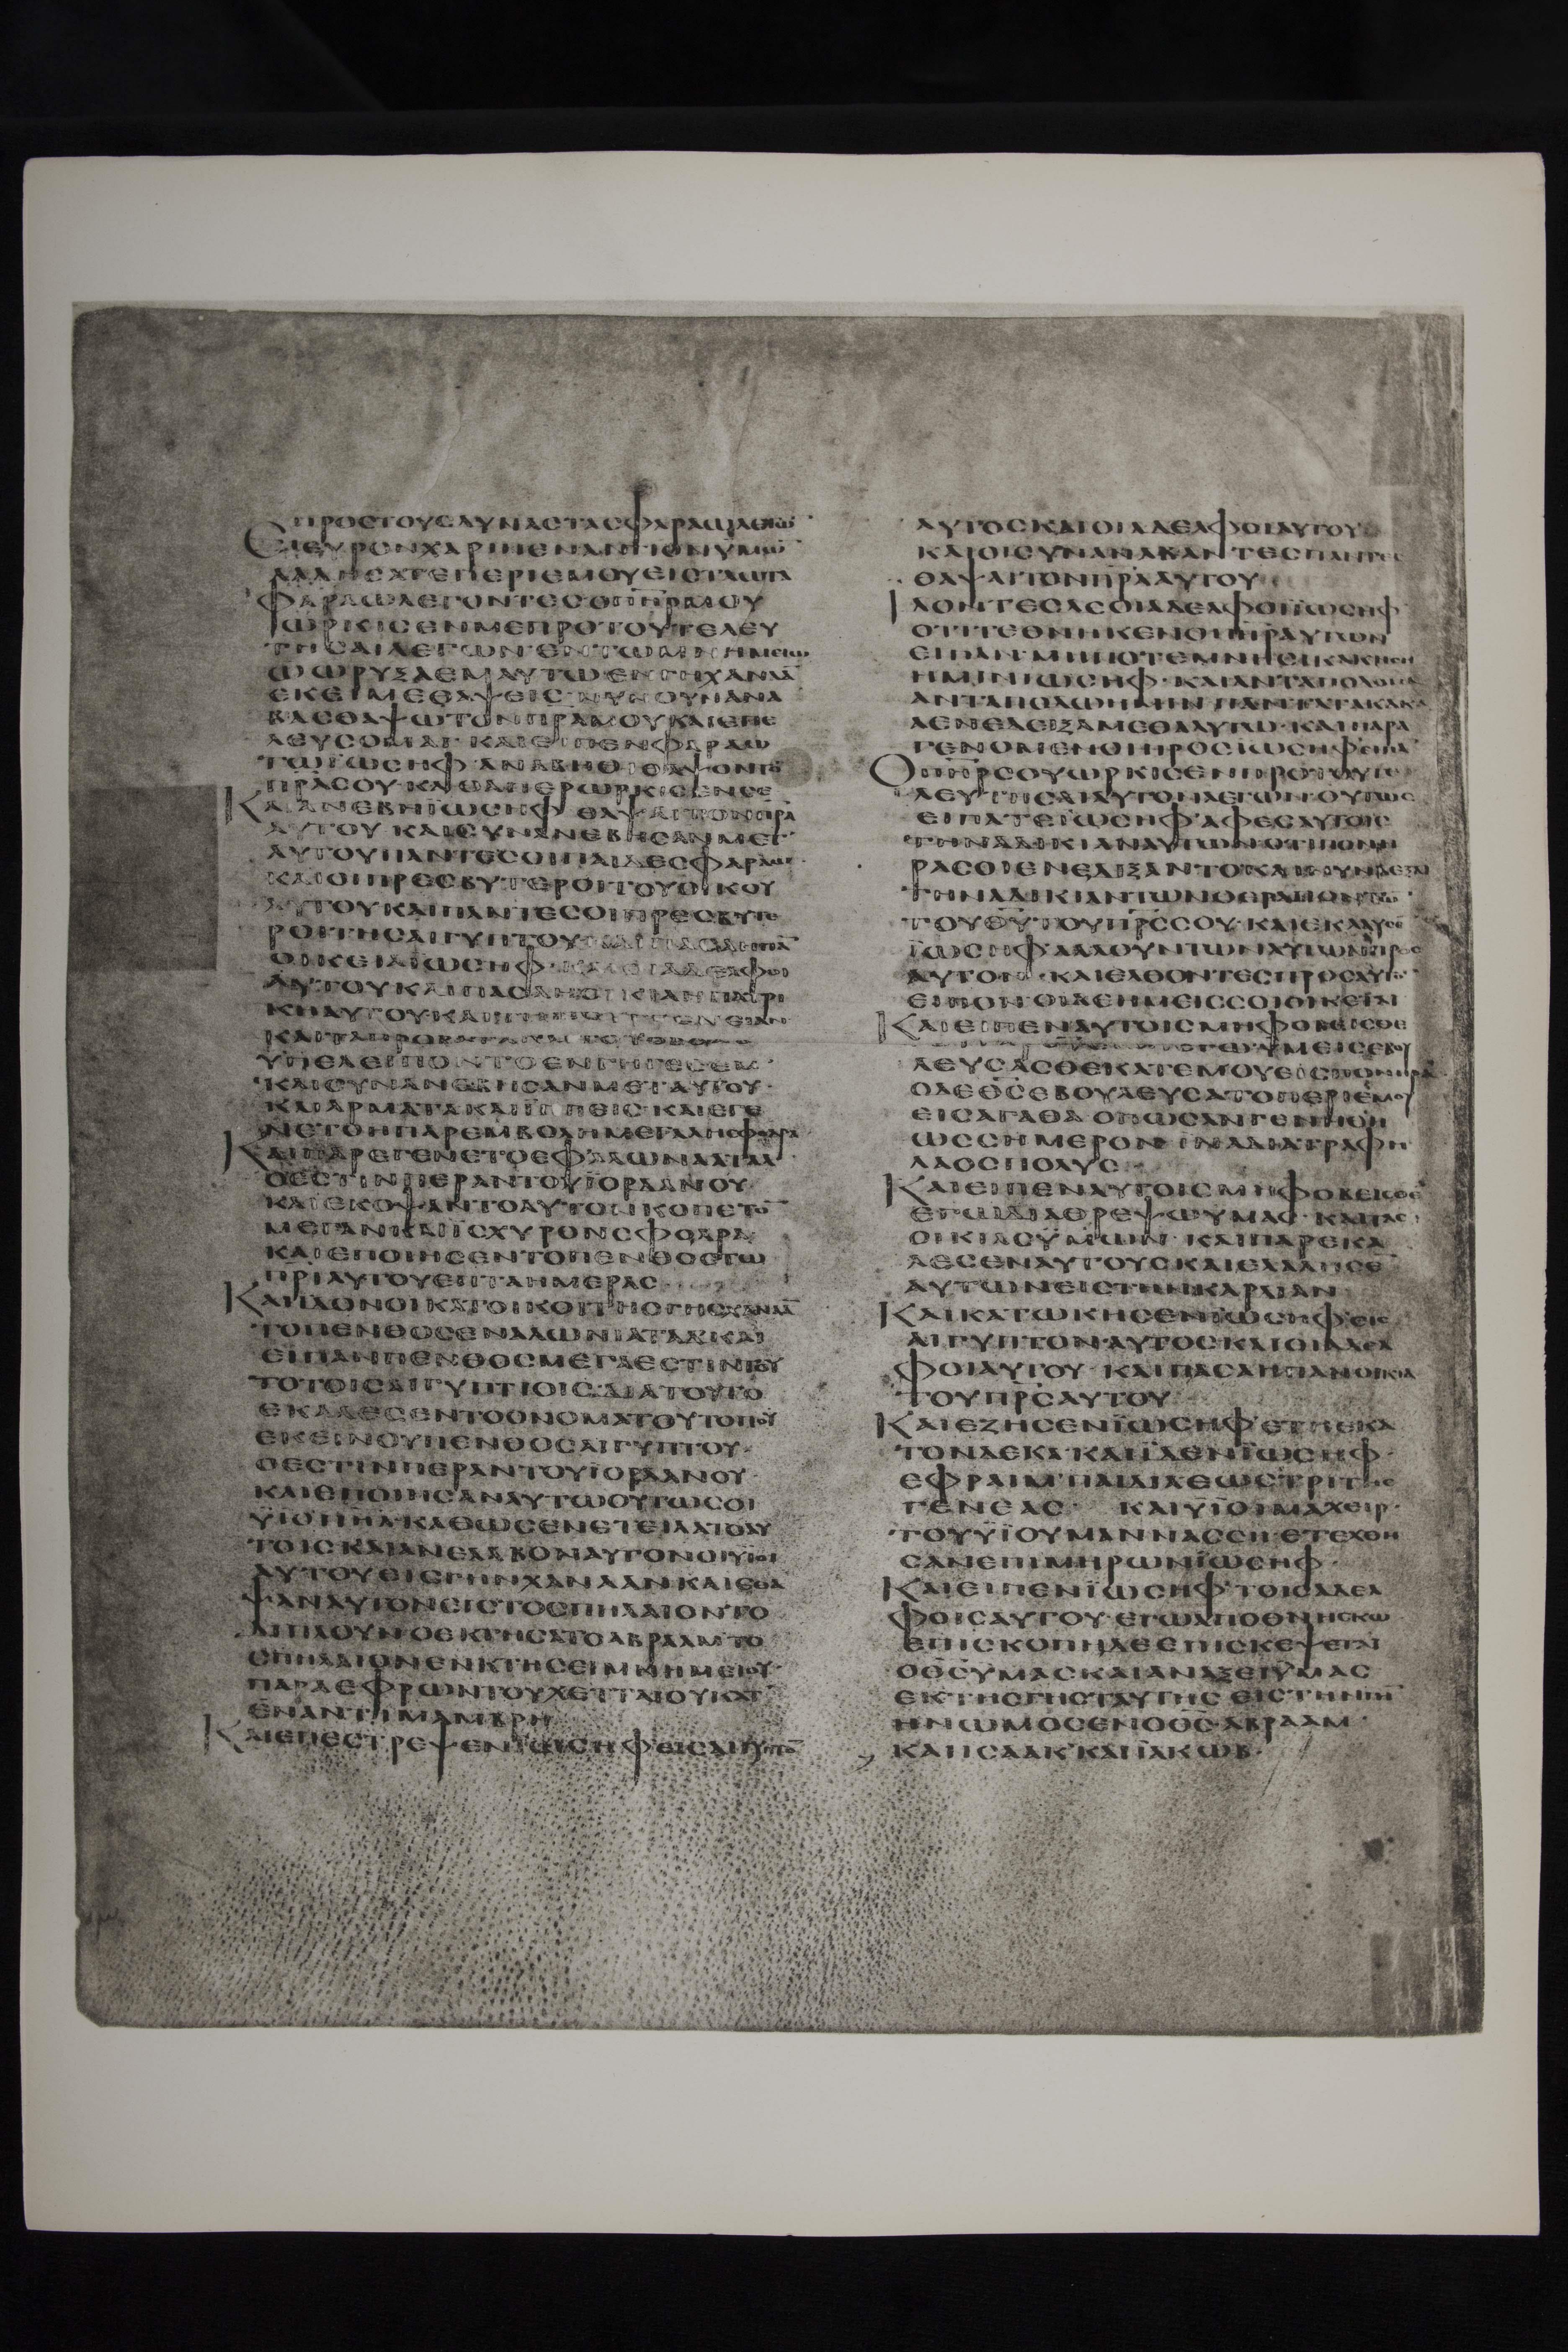 ΠΡΟΣΤΟΥΣΔΥΝΑΣΤΑΣΦΑΡΑΩΛΕΓΩΝ
ΕΙΕΥΡΟΝΧΑΡΙΝΕΝΑΝΤΙΟΝΫΜΩΝ
ΛΑΛΗΣΑΤΕΠΕΡΙΕΜΟΥΕΙΣΤΑΩΤΑ
ΦΑΡΑΩΛΕΓΟΝΤΕΣΟΠΗΡΜΟΥ
ΩΡΚΙΣΕΝΜΕΠΡΟΤΟΥΤΕΛΕΥ
ΤΗΣΑΙΛΕΓΩΝΕΝΤΩΜΝΗΜΕΙΩ
ΩΩΡΥΞΑΕΜΑΥΤΩΕΝΓΗΧΑΝΑΑ
ΕΚΕΙΜΕΘΑΨΕΙΣΝΥΝΟΥΝΑΝΑ
ΒΑΣΘΑΨΩΤΟΝΠΡΑΜΟΥΚΑΙΕΠΕ
ΛΕΥΣΟΜΑΙ·ΚΑΙΕΙΠΕΝΦΑΡΑΩ
ΤΩΪΩΣΗΦ·ΑΝΑΒΗΘΙΘΑΨΟΝΤΟ
ΠΡΑΣΟΥΚΑΘΑΠΕΡΩΡΚΙΣΕΝΣΕ
ΚΑΙΑΝΕΒΗΪΩΣΗΦΘΑΨΑΙΤΟΝΠΡΑ
ΑΥΤΟΥΚΑΙΣΥΝΑΝΕΒΗΣΑΝΜΕΤ
ΑΥΤΟΥΠΑΝΤΕΣΟΙΠΑΙΔΕΣΦΑΡΑΩ
ΚΑΙΟΙΠΡΕΣΒΥΤΕΡΟΙΤΟΥΟΙΚΟΥ
ΑΥΤΟΥΚΑΙΠΑΝΤΕΣΟΙΠΡΕΣΒΥΤΕ
ΡΟΙΓΗΣΑΙΓΥΠΤΟΥ
ΟΙΚΕΙΑΪΩΣΗΦ·ΚΑΙΟΙΑΔΕΛΦΟΙ
ΑΥΤΟΥΚΑΙΠΑΣΑΗΟΙΚΙΑΗΠΑΤΡΙ
ΚΗΑΥΤΟΥ
ΫΠΕΛΕΙΠΟΝΤΟΕΝΓΗΓΕΣΕΜ·
ΚΑΙΣΥΝΑΝΕΒΗΣΑΝΜΕΤΑΥΤΟΥ·
ΚΑΙΑΡΜΑΤΑΚΑΙΪΠΠΕΙΣΚΑΙΕΓΕ
ΝΕΤΟΗΠΑΡΕΜΒΟΛΗΜΕΓΑΛΗΣΦΟΔΡΑ
ΚΑΙΠΑΡΕΓΕΝΕΤΟΕΦΑΛΩΝΑΑΤΑΔ
ΟΕΣΤΙΝΠΕΡΑΝΤΟΥΪΟΡΔΑΝΟΥ·
ΚΑΙΕΚΟΨΑΝΤΟΑΥΤΟΝΚΟΠΕΤΟ
ΜΕΓΑΝΚΑΙΪΣΧΥΡΟΝΣΦΟΔΡΑ
ΚΑΙΕΠΟΙΗΣΕΝΤΟΠΕΝΘΟΣΤΩ
ΠΡΙΑΥΤΟΥΕΠΤΑΗΜΕΡΑΣ
ΚΑΙΙΔΟΝΟΙΚΑΤΟΙΚΟΙΤΗΣΓΗΣΧΑΝΑΑ
ΤΟΠΕΝΘΟΣΕΝΑΛΩΝΙΑΤΑΔΚΑΙ
ΕΙΠΑΝΠΕΝΘΟΣΜΕΓΑΕΣΤΙΝΤΟΥ
ΤΟΤΟΙΣΑΙΓΥΠΤΙΟΙΣΔΙΑΤΟΥΤΟ
ΕΚΑΛΕΣΕΝΤΟΟΝΟΜΑΤΟΥΤΟΠΟΥ
ΕΚΕΙΝΟΥΠΕΝΘΟΣΑΙΓΥΠΤΟΥ·
ΟΕΣΤΙΝΠΕΡΑΝΤΟΥΪΟΡΔΑΝΟΥ·
ΚΑΙΕΠΟΙΗΣΑΝΑΥΤΩΟΥΤΩΣΟΙ
ΫΙΟΙΙΗΛΚΑΘΩΣΕΝΕΤΕΙΛΑΤΟΑΥ
ΤΟΙΣΚΑΙΑΝΕΛΑΒΟΝΑΥΤΟΝΟΙΥΙΟΙ
ΑΥΤΟΥΕΙΣΓΗΝΧΑΝΑΑΝΚΑΙΕΘΑ
ΨΑΝΑΥΤΟΝΕΙΣΤΟΣΠΗΛΑΙΟΝΤΟ
ΔΙΠΛΟΥΝΟΕΚΤΗΣΑΤΟΑΒΡΑΑΜΤΟ
ΣΠΗΛΑΙΟΝΕΝΚΤΗΣΕΙΜΝΗΜΕΙΟΥ·
ΠΑΡΑΕΦΡΩΝΤΟΥΧΕΤΤΑΙΟΥΚΑΤ
ΕΝΑΝΤΙΜΑΜΒΡΗ
ΚΑΙΕΠΕΣΤΡΕΨΕΝΪΩΣΗΦΕΙΣΑΙΓΥΠΤΟ
ΑΥΤΟΣΚΑΙΟΙΑΔΕΛΦΟΙΑΥΤΟΥ
ΚΑΙΟΙΣΥΝΑΝΑΒΑΝΤΕΣΠΑΝΤΕΣ
ΘΑΨΑΙΤΟΝΠΡΑΑΥΤΟΥ
ΙΔΟΝΤΕΣΔΕΟΙΑΔΕΛΦΟΙΪΩΣΗΦ
ΟΤΙΤΕΘΝΗΚΕΝΟΠΗΡΑΥΤΩΝ
ΕΙΠΑΝ·ΜΗΠΟΤΕΜΝΗΣΙΚΑΚΗΣΗ
ΗΜΙΝΪΩΣΗΦ·ΚΑΙΑΝΤΑΠΟΔΟΜΑ
ΑΝΤΑΠΟΔΩΗΜΙΝΠΑΝΤΑΤΑΚΑΚΑ
ΑΕΝΕΔΕΙΞΑΜΕΘΑΑΥΤΩ·ΚΑΙΠΑΡΑ
ΓΕΝΟΜΕΝΟΙΠΡΟΣΪΩΣΗΦΕΙΠΑ
ΟΠΗΡΣΟΥΩΡΚΙΣΕΝΠΡΟΤΟΥΤΕ
ΛΕΥΤΗΣΑΙΑΥΤΟΝΛΕΓΩΝΟΥΤΩΣ
ΕΙΠΑΤΕΪΩΣΗΦΑΦΕΣΑΥΤΟΙΣ
ΤΗΝΑΔΙΚΙΑΝΑΥΤΩΝΟΤΙΠΟΝΗ
ΡΑΣΟΙΕΝΕΔΙΞΑΝΤΟΚΑΙΝΥΝΔΕΞΑΙ
ΤΗΝΑΔΙΚΙΑΝΤΩΝΘΕΡΑΠΟΝΤΩ
ΤΟΥΘΥΤΟΥΠΡΣΣΟΥ·ΚΑΙΕΚΛΑΥΣΕ
ΪΩΣΗΦΛΑΛΟΥΝΤΩΝΑΥΤΩΝΠΡΟΣ
ΑΥΤΟΝ·ΚΑΙΕΛΘΟΝΤΕΣΠΡΟΣΑΥΤΟ
ΕΙΠΟΝΟΙΔΕΗΜΕΙΣΣΟΙΟΙΚΕΤΑΙ
ΚΑΙΕΙΠΕΝΑΥΤΟΙΣΜΗΦΟΒΕΙΣΘΕ
ΫΜΕΙΣΕΒΟΥ
ΛΕΥΣΑΣΘΕΚΑΤΕΜΟΥΕΙΣΠΟΝΗΡΑ
ΟΔΕΘΣΕΒΟΥΛΕΥΣΑΤΟΠΕΡΙΕΜΟΥ
ΕΙΣΑΓΑΘΑΟΠΩΣΑΝΓΕΝΗΘΗ
ΩΣΣΗΜΕΡΟΝΙΝΑΔΙΑΤΡΑΦΗ
ΛΑΟΣΠΟΛΥΣ
ΚΑΙΕΙΠΕΝΑΥΤΟΙΣΜΗΦΟΒΕΙΣΘΕ
ΕΓΩΔΙΑΘΡΕΨΩΫΜΑΣ·ΚΑΙΤΑΣ
ΟΙΚΙΑΣΫΜΩΝ·ΚΑΙΠΑΡΕΚΑ
ΛΕΣΕΝΑΥΤΟΥΣΚΑΙΕΛΑΛΗΣΕ
ΑΥΤΩΝΕΙΣΤΗΝΚΑΡΔΙΑΝ
ΚΑΙΚΑΤΩΚΗΣΕΝΪΩΣΗΦΕΙΣ
ΑΙΓΥΠΤΟΝΑΥΤΟΣΚΑΙΟΙΑΔΕΛ
ΦΟΙΑΥΤΟΥ·ΚΑΙΠΑΣΑΗΠΑΝΟΙΚΙΑ
ΤΟΥΠΡΣΑΥΤΟΥ
ΚΑΙΕΖΗΣΕΝΪΩΣΗΦΕΤΗΕΚΑ
ΤΟΝΔΕΚΑ·ΚΑΙΪΔΕΝΪΩΣΗΦ·
ΕΦΡΑΙΜΠΑΙΔΙΑΕΩΣΤΡΙΤΗΣ
ΓΕΝΕΑΣ· ΚΑΙΥΪΟΙΜΑΧΕΙΡ·
ΤΟΥΫΪΟΥΜΑΝΝΑΣΣΗΕΤΕΧΘΗ
ΣΑΝΕΠΙΜΗΡΩΝΪΩΣΗΦ·
ΚΑΙΕΙΠΕΝΪΩΣΗΦΤΟΙΣΑΔΕΛ
ΦΟΙΣΑΥΤΟΥ·ΕΓΩΑΠΟΘΝΗΣΚΩ
ΕΠΙΣΚΟΠΗΔΕΕΠΙΣΚΕΨΕΤΑΙ
ΟΘΣΥΜΑΣΚΑΙΑΝΑΞΕΙΫΜΑΣ
ΕΚΤΗΣΓΗΣΤΑΥΤΗΣΕΙΣΤΗΝΓΗ
ΗΝΩΜΟΣΕΝΟΘΣΑΒΡΑΑΜ·
ΚΑΙΙΣΑΑΚΚΑΙΪΑΚΩΒ·